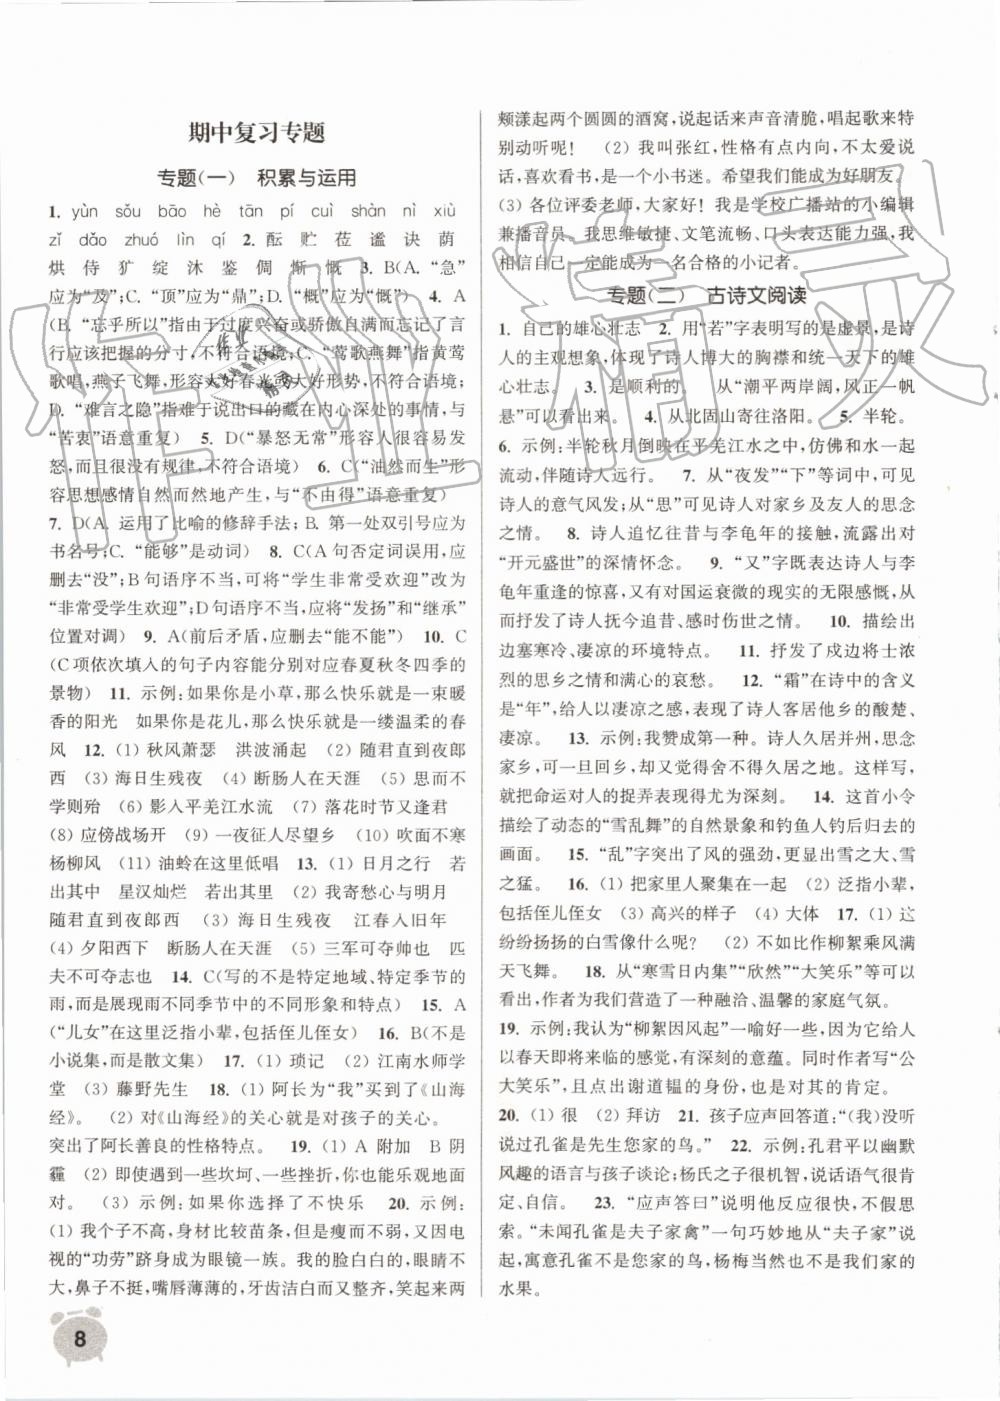 期中复习专题
专题(一) 积累与运用
1. yùn sǒu bāo hè tān pí cuì shàn nì xiù
zǐ dǎo zhuó lìn qí 2. 酝 贮 莅 谧 诀 荫
烘 侍 犷 绽 沐 鉴 倜 惭 慨 3. B(A. “急”
应为“及”;C. “顶”应为“鼎”;D. “概”应为“慨”) 4. A
(B. “忘乎所以”指由于过度兴奋或骄傲自满而忘记了言
行应该把握的分寸,不符合语境;C. “莺歌燕舞”指黄莺
歌唱,燕子飞舞,形容大好春光或大好形势,不符合语境;
D. “难言之隐”指难于说出口的藏在内心深处的事情,与
“苦衷”语意重复) 5. D(“暴怒无常”形容人很容易发
怒,而且很没有规律,不符合语境) 6. C(“油然而生”形
容思想感情自然而然地产生,与“不由得”语意重复)
7. D(A. 运用了比喻的修辞手法;B. 第一处双引号应为
书名号;C. “能够”是动词) 8. C(A句否定词误用,应
删去“没”;B句语序不当,应将“学生非常受欢迎”改为
“非常受学生欢迎”;D句语序不当,应将“发扬”和“继承”
位置对调) 9. A(前后矛盾,应删去“能不能”) 10. C
(C项依次填入的句子内容能分别对应春夏秋冬四季的
景物) 11. 示例:如果你是小草,那么快乐就是一束暖
香的阳光 如果你是花儿,那么快乐就是一缕温柔的春
风 12. (1) 秋风萧瑟 洪波涌起 (2) 随君直到夜郎
西 (3) 海日生残夜 (4) 断肠人在天涯 (5) 思而不
学则殆 (6) 影入平羌江水流 (7) 落花时节又逢君
(8) 应傍战场开 (9) 一夜征人尽望乡 (10) 吹面不寒
杨柳风 (11) 油蛉在这里低唱 13. (1) 日月之行 若
出其中 星汉灿烂 若出其里 (2) 我寄愁心与明月
随君直到夜郎西 (3) 海日生残夜 江春入旧年
(4) 夕阳西下 断肠人在天涯 (5) 三军可夺帅也 匹
夫不可夺志也 14. C(写的不是特定地域、特定季节的
雨,而是展现雨在不同季节中的不同形象和特点) 15. A
(“儿女”在这里泛指小辈,包括侄儿侄女) 16. B(不是
小说集,而是散文集) 17. (1) 琐记 (2) 江南水师学
堂 (3) 藤野先生 18. (1) 阿长为“我”买到了《山海
经》。 (2) 对《山海经》的关心就是对孩子的关心。
突出了阿长善良的性格特点。 19. (1) A 附加 B 阴
霾 (2) 即使遇到一些坎坷、一些挫折,你也能乐观地面
对。 (3) 示例:如果你选择了不快乐 20. 示例:
(1) 我个子不高,身材比较苗条,但是瘦而不弱,又因电
视的“功劳”跻身成为眼镜一族。我的脸白白的,眼睛不
大,鼻子不挺,嘴唇薄薄的,牙齿洁白而又整齐,笑起来两
颊漾起两个圆圆的酒窝,说起话来声音清脆,唱起歌来特
别动听呢! (2) 我叫张红,性格有点内向,不太喜爱
说话,喜欢看书,是一个小书迷。希望我们能成为好朋友。
(3) 各位评委老师,大家好!我是学校广播站的小编辑
兼播音员。我思维敏捷、文笔流畅、口头表达能力强,我
相信自己一定能成为一名合格的小记者。
专题(二) 古诗文阅读
1. 自己的雄心壮志 2. 用“若”字表明写的是虚景,是诗
人的主观想象,体现了诗人博大的胸襟和统一天下的雄
心壮志。 3. 是顺利的。 从“潮平两岸阔,风正一帆
悬”可以看出来。 4. 从北固山寄往洛阳。 5. 半轮。
6. 示例:半轮秋月倒映在平羌江水之中,仿佛和水一起
流动,伴随诗人远行。 7. 从“夜发”“下”等词中,可见
诗人的意气风发;从“思”可见诗人对家乡及友人的思念
之情。 8. 诗人追忆往昔与李龟年的接触,流露出对
“开元盛世”的深情怀念。 9. “又”字既表达诗人与李
龟年重逢的惊喜,又有对国运衰微的现实的无限感慨,
从而抒发了诗人抚今追昔、感时伤世之情。 10. 描绘出
边塞寒冷、凄凉的环境特点。 11. 抒发了戍边将士浓
烈的思乡之情和满心的哀愁。 12. “霜”在诗中的含义
是“年”,给人以凄凉之感,表现了诗人客居他乡的酸楚、
凄凉。 13. 示例:我赞成第一种。诗人久居并州,思念
家乡,可到头来,却又离家乡越来越远,而不得不久居之地。这样写,
就把命运对人的捉弄表现得尤为深刻。 14. 这首小令
描绘了动态的“雪乱舞”的自然景象和钓鱼人钓后归去的
画面。 15. “乱”字突出了风的强劲,更显出雪之大、雪
之猛。 16. (1) 把家里人聚集在一起 (2) 泛指小辈,
包括侄儿侄女 (3) 高兴的样子 (4) 大体 17. (1) 这
纷纷扬扬的白雪像什么呢? (2) 不如比作柳絮乘风满
天飞舞。 18. 从“寒雪日内集”“欣然”“大笑乐”等可以
看出,作者为我们营造了一种融洽、温馨的家庭气氛。
19. 示例:我认为“柳絮因风起”一喻好一些,因为它给人
以春天即将来临的感觉,有深刻的意蕴。同时作者写“公
大笑乐”,且点出谢道韫的身份,也是对她的肯定。
20. (1) 很 (2) 拜访 21. 孩子应声回答道:“(我)没听
说过孔雀是先生您家的鸟。” 22. 示例:孔君平以幽默
风趣的语言与孩子谈论;杨氏之子很机智,说话语气很肯
定、自信。 23. “应声答曰”说明他反应很快,不假思
索。“未闻孔雀是夫子家禽”一句巧妙地从“夫子家”说
起,寓意孔雀不是你家的鸟,杨梅当然也不是我们家的
水果。
8